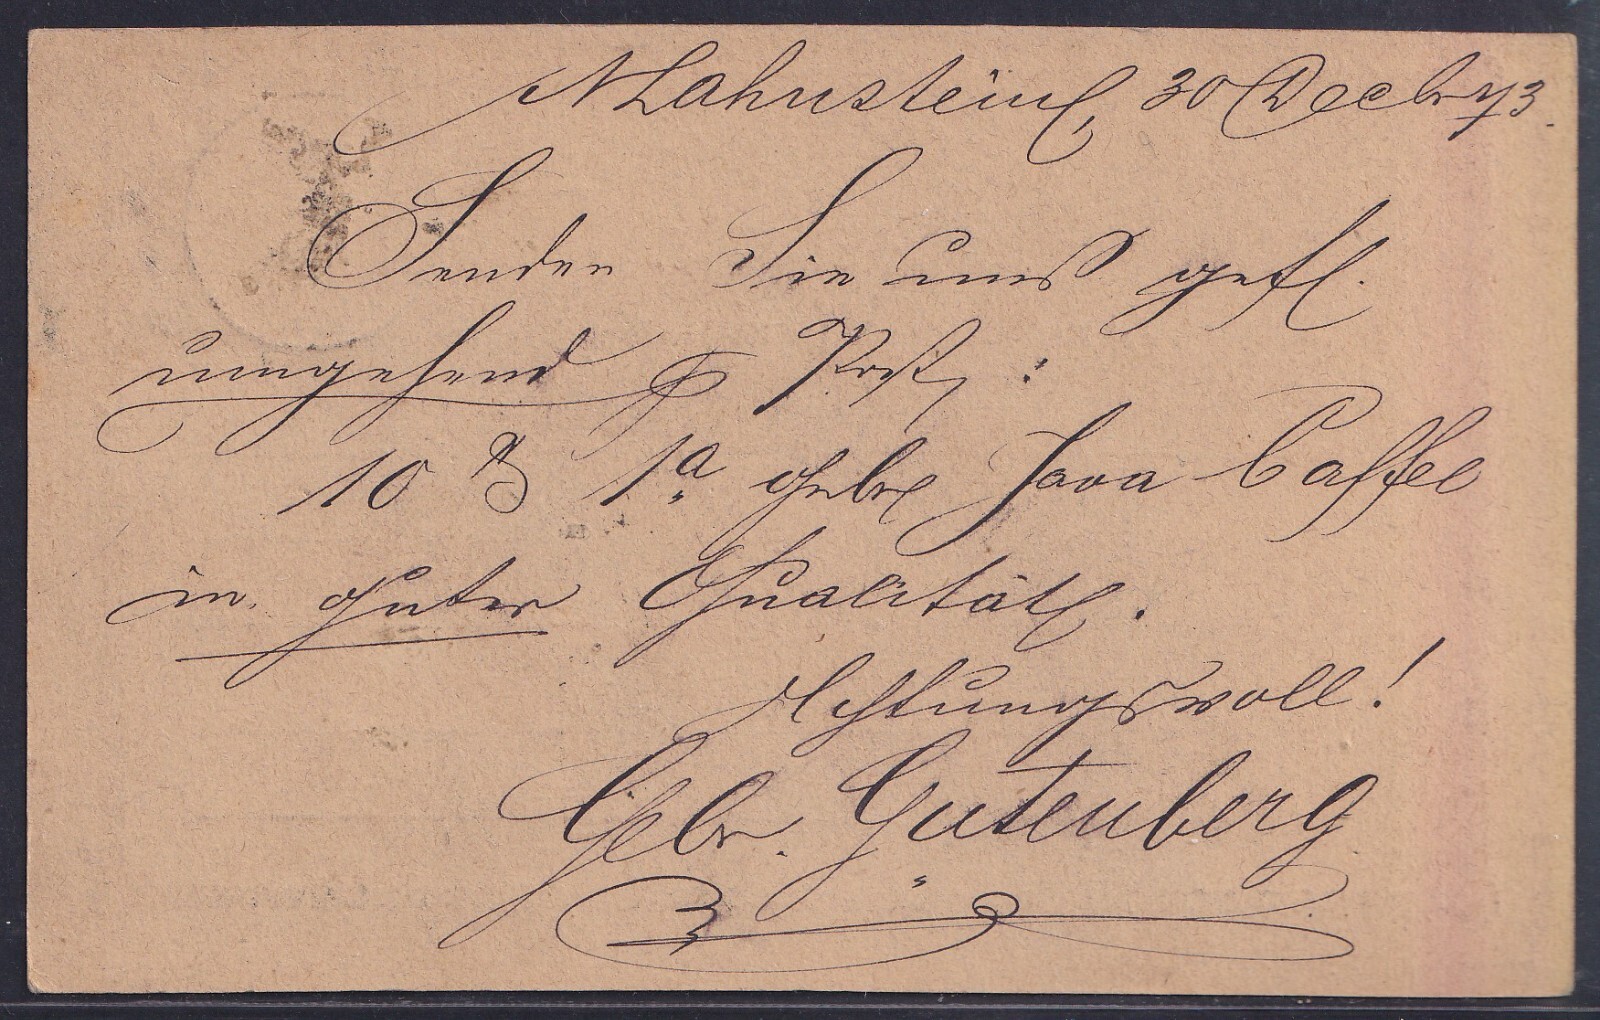 NLahnstein, 30 Decbr 73.
Senden Sie uns gefl.
umgehend p Post,:
10 ℔ 1a gelb Java Caffee
in guter Qualität.
Achtungsvoll!
Gebr. Gutenberg